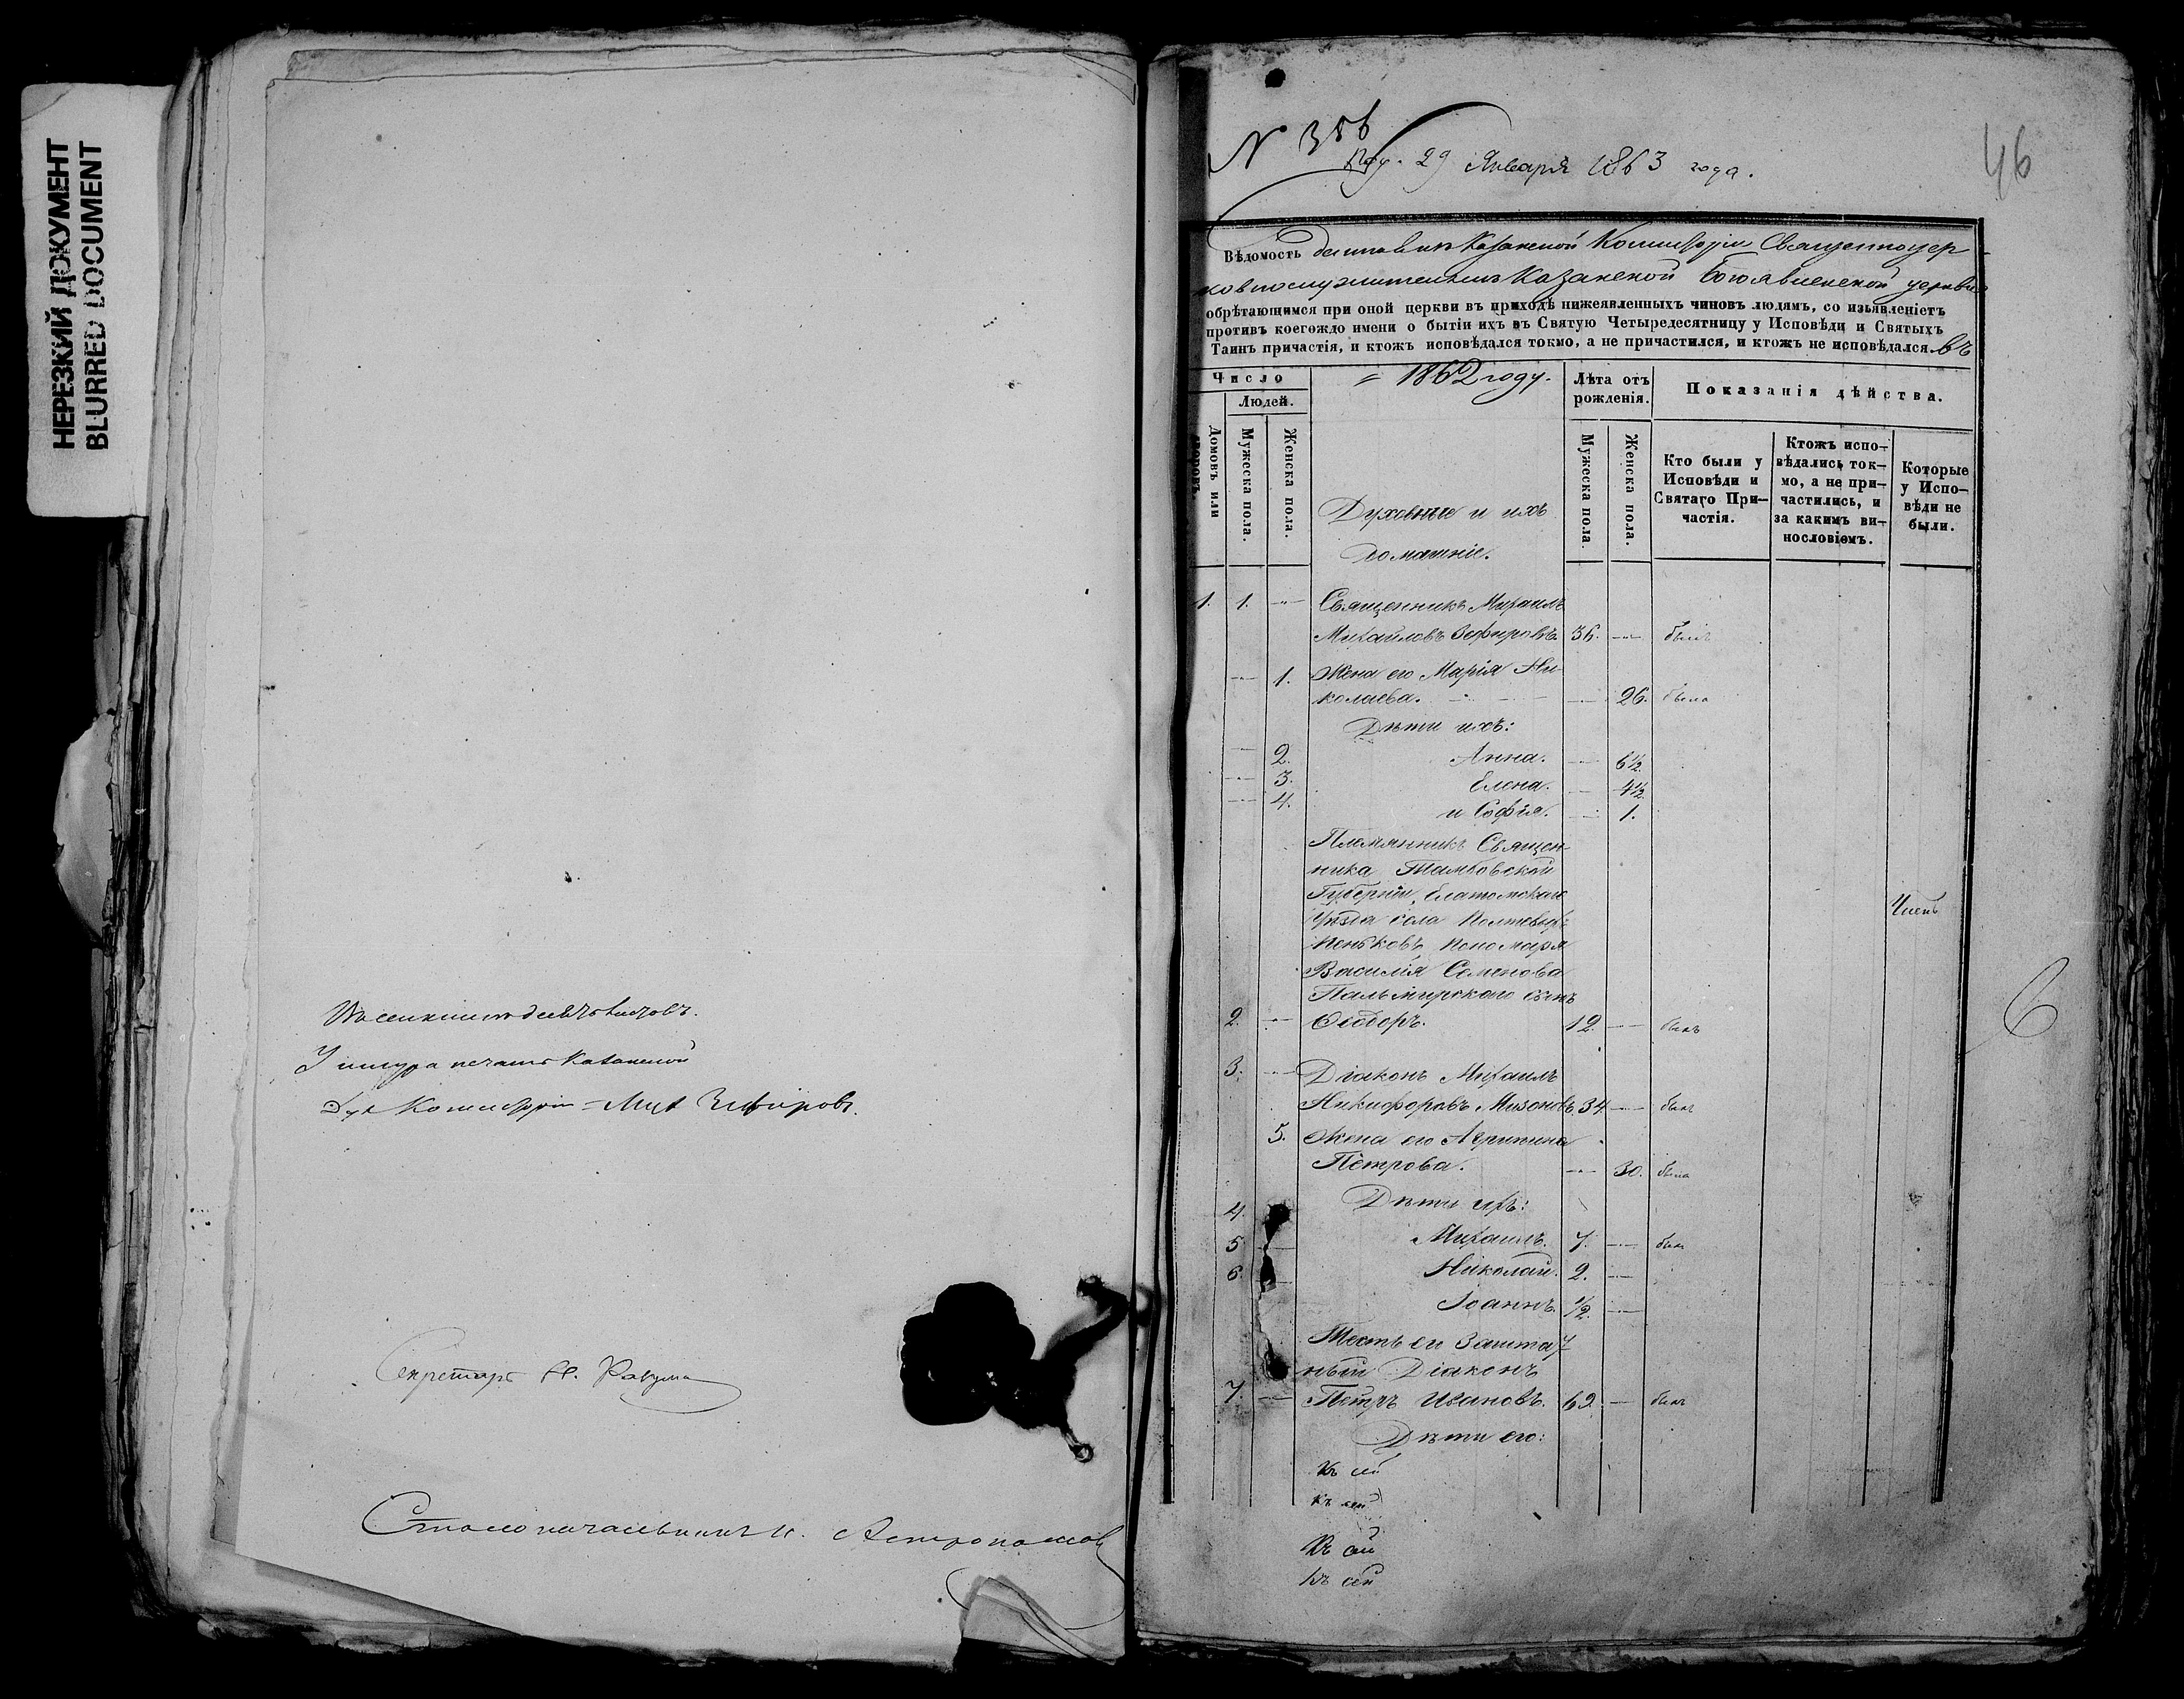 НЕРЕЗКИЙ ДОКУМЕНТ
BLURRED DOCUMENT
У шнура печать Казанской
Дух Коммиссіи Мих Зефировъ.
Секретарь Н.
Столоначальникъ
N 356
Пол. 29 Января 1863 года.
46
Вѣдомость данная изъ Казанской Коммиссіи Священноцер-
ковнослужителямъ Казанской Богоявленской церкви
обрѣтающимся при оной церкви въ приходѣ нижеявленныхъ чиновъ людямъ, со изъявленіетъ
противъ коегождо имени о бытіи ихъ въ Святую Четыредесятницу у Исповѣди и Святыхъ
Таинъ причастія, и ктожъ исповѣдался токмо, а не причастился, и ктожъ не исповѣдался. въ
= 1862 году.
Число
Людей.
Домовъ или дворовъ.
Мужеска пола.
Женска пола.
Духовные и ихъ
домашніе.
Лѣта отъ
рожденія.
Мужеска пола.
Женска пола.
Показанія дѣйства.
Кто были у
Исповѣди и
Святаго При-
частія.
Ктожъ испо-
вѣдались ток-
мо, а не при-
частились, и
за какимъ ви-
нословіемъ.
Которые
у Испо-
вѣди не
были.
1. 1. Священникъ Михаилъ
Михайловъ Зефировъ. 36. былъ
1. Жена его Марія Ни-
колаева. 26. была
Дѣти ихъ:
2. Анна. 6½
3. Елена. 4½
4. и Софія. 1.
Племянникъ Священ-
ника Тамбовской
Губерніи, Елатомскаго
Уѣзда села
Пеньковъ Пономаря
Василія Семенова
Пальмирскаго сынъ
2. Ѳеодоръ. 12. былъ
3. Діаконъ Михаилъ
Никифоровъ 34 былъ
5. Жена его Агрипина
Петрова. 30. была
Дѣти ихъ:
4. Михаилъ. 7. былъ
5. Николай. 2.
6. Іоаннъ. ½
Тесть его Заштат
ный Діаконъ
7. Петръ Ивановъ. 62. былъ
Дѣти его:
къ сей
къ сей
къ сей
къ сей
6